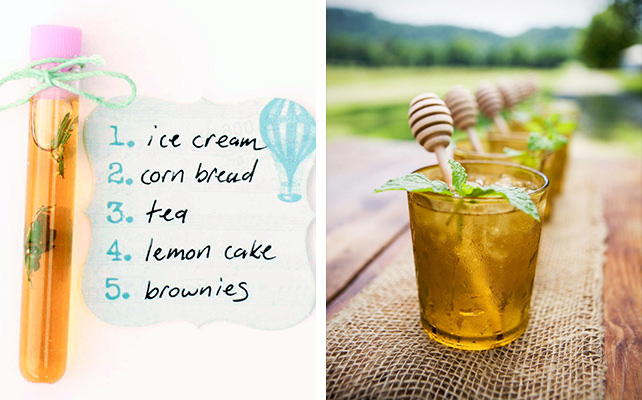 1. ice cream
2. corn bread
3. tea
4. lemon cake
5. brownies